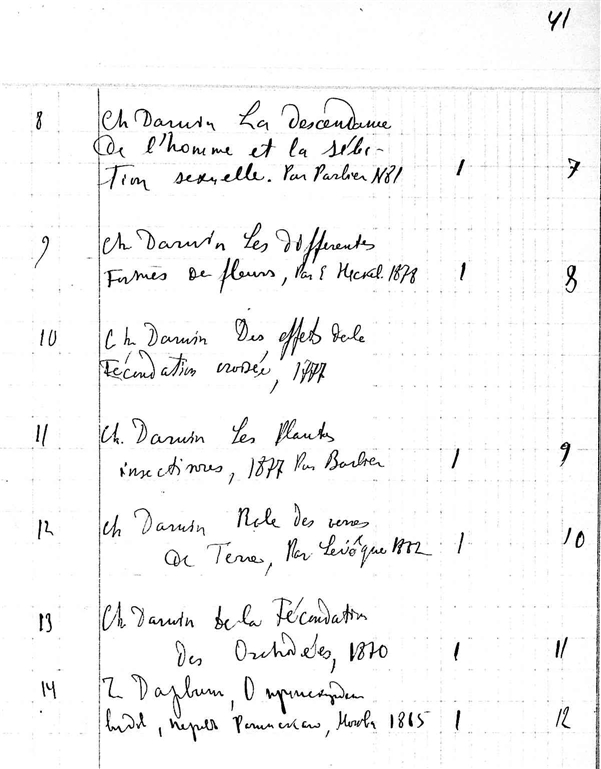 41
8 Ch Darwin La descendance
de l'homme et la sélec-
tion sexuelle. Par Barbier 1881 1 7
9 Ch Darwin Les differentes
Formes de fleurs, Par E Heckel 1878 1 8
10 Ch Darwin Des effets de la
Fécondation croisée, 1877
11 Ch. Darwin Les Plantes
insectivores, 1877 Par Barbier 1 9
12 Ch Darwin Role des verres
de Terre, Par Levêque 1882 1 10
13 Ch Darwin De la Fécondation
des Orchidées, 1870 1 11
14 Дарвин, О происхожден
видов, перев 1865 1 12